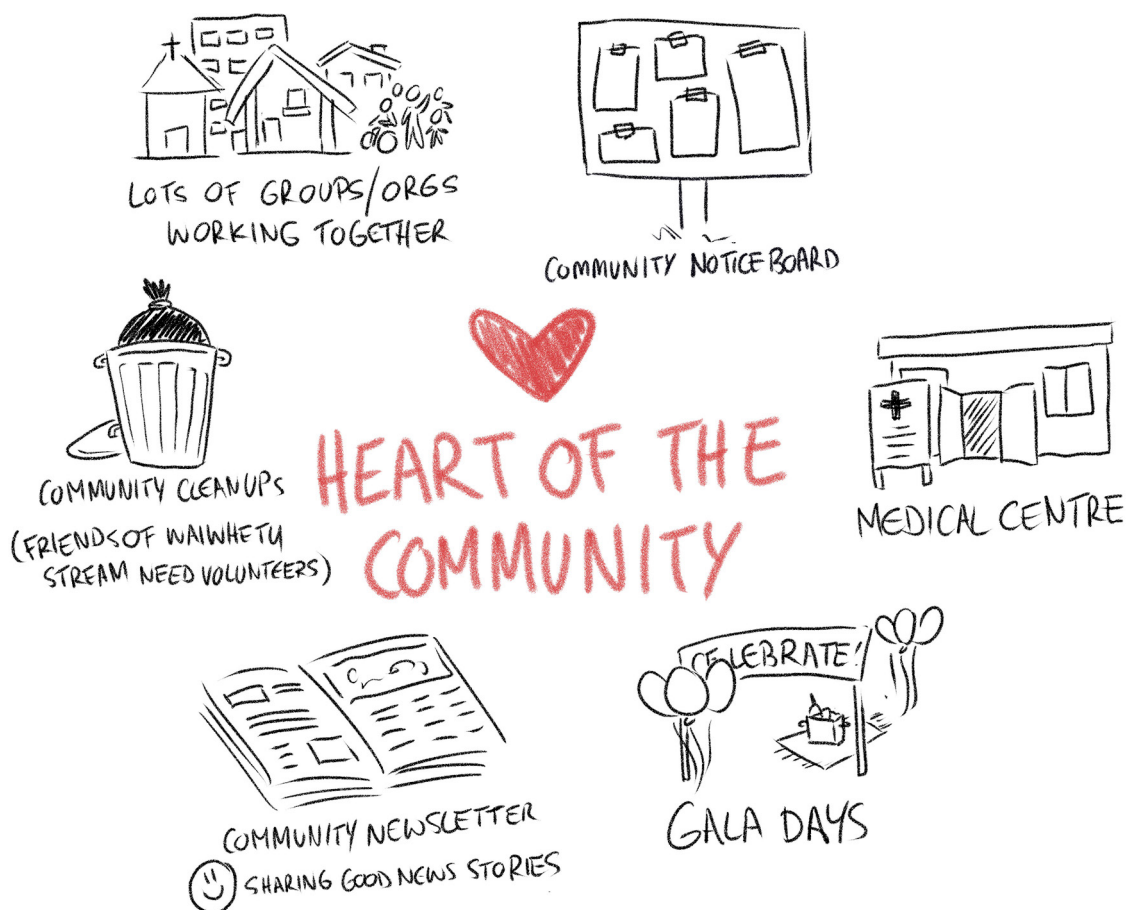 LOTS OF GROUPS/ORGS
WORKING TOGETHER
COMMUNITY NOTICE BOARD
COMMUNITY CLEANUPS
(FRIENDS OF WAIWHETU
STREAM NEED VOLUNTEERS)
HEART OF THE
COMMUNITY
MEDICAL CENTRE
COMMUNITY NEWSLETTER
SHARING GOOD NEWS STORIES
CELEBRATE!
GALA DAYS